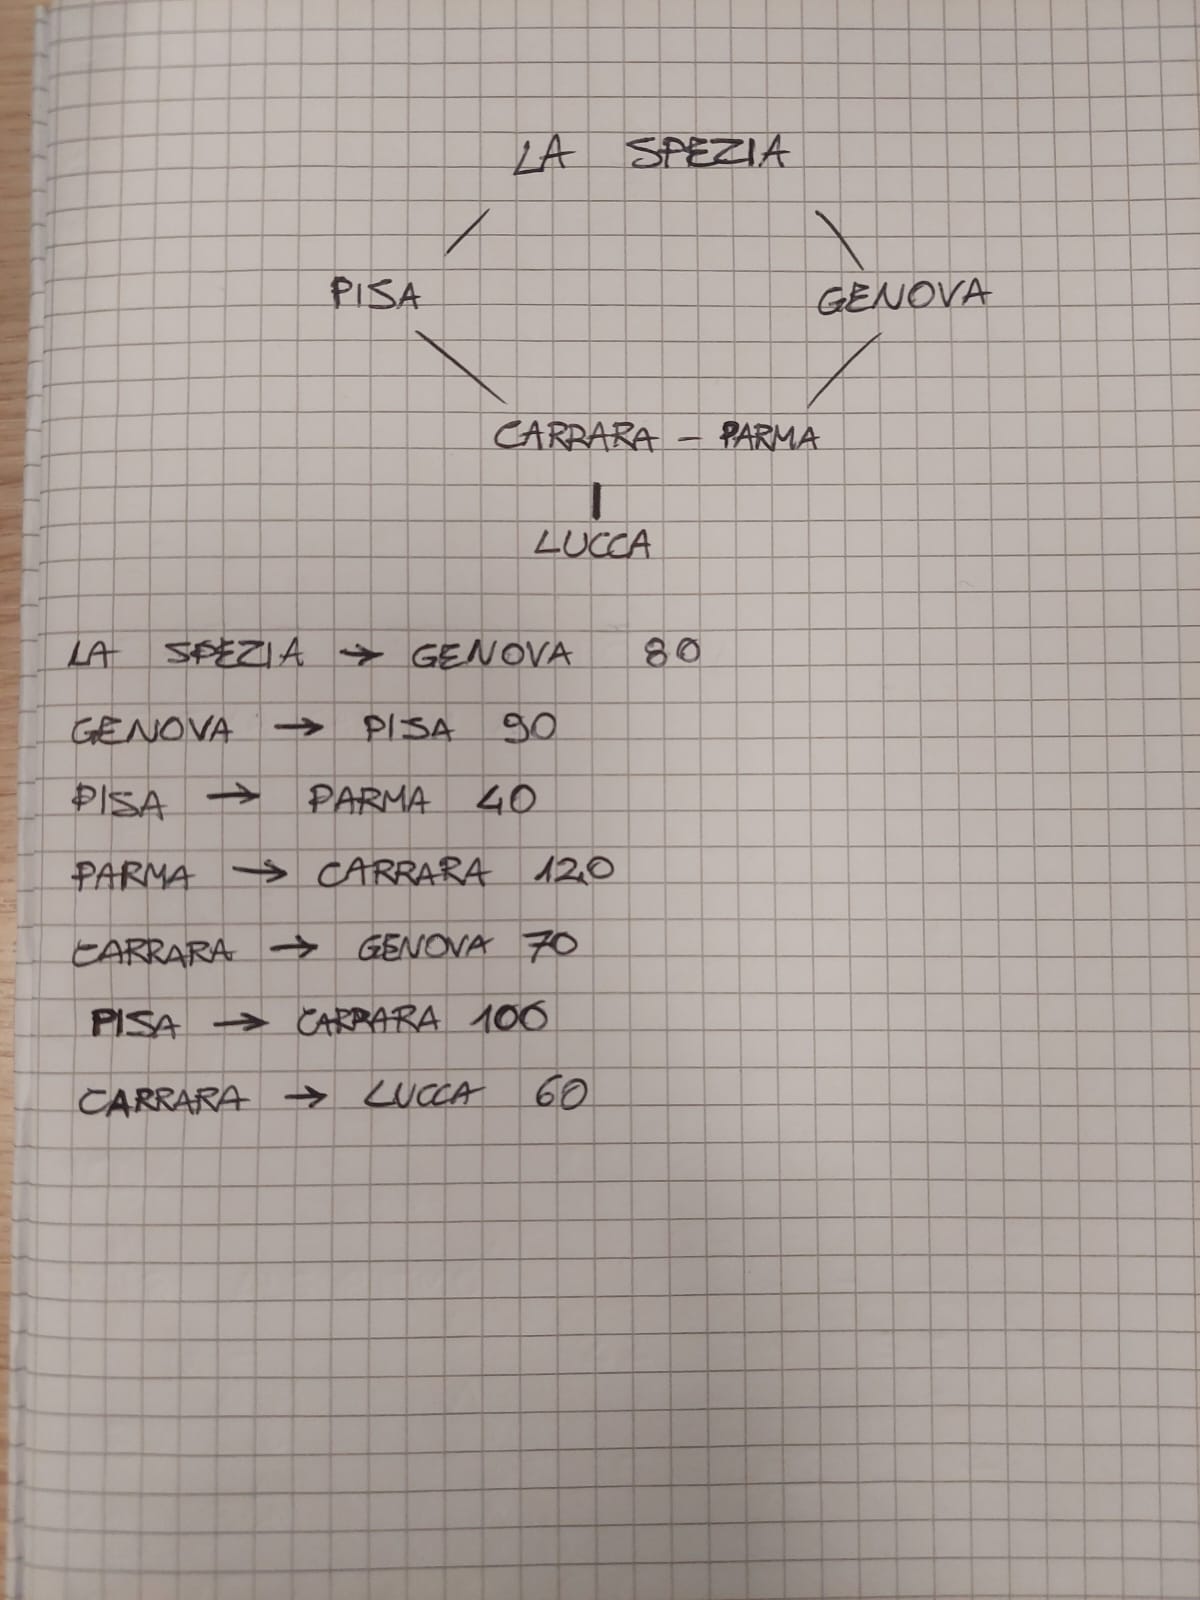 LA SPEZIA
PISA GENOVA
CARRARA - PARMA
LUCCA
LA SPEZIA → GENOVA 80
GENOVA → PISA 90
PISA → PARMA 40
PARMA → CARRARA 120
CARRARA → GENOVA 70
PISA → CARRARA 100
CARRARA → LUCCA 60